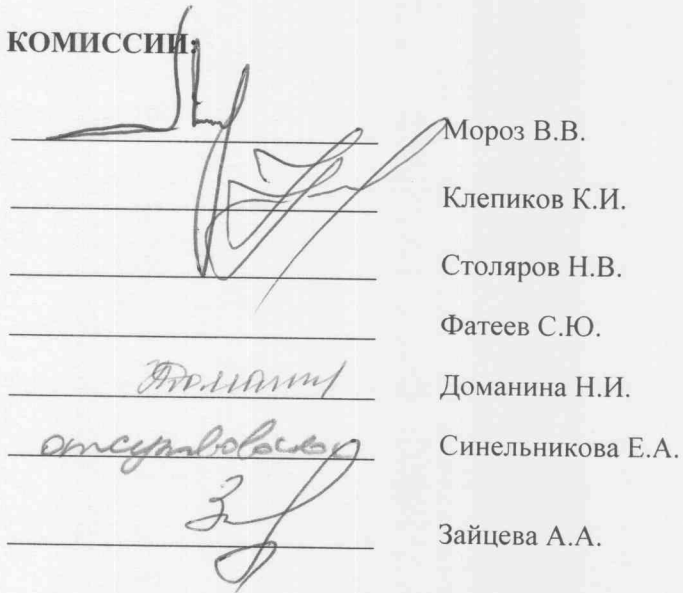 КОМИССИИ:
Мороз В.В.
Клепиков К.И.
Столяров Н.В.
Фатеев С.Ю.
Доманина Н.И.
отсутствовала Синельникова Е.А.
Зайцева А.А.